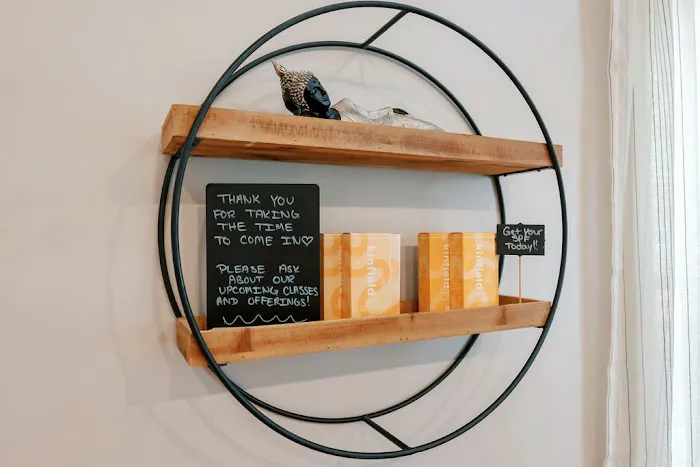 THANK YOU
FOR TAKING
THE TIME
TO COME IN♡
PLEASE ASK
ABOUT OUR
UPCOMING CLASSES
AND OFFERINGS!
kinfield
kinfield
kinfield
Get Your
SPF
Today!!